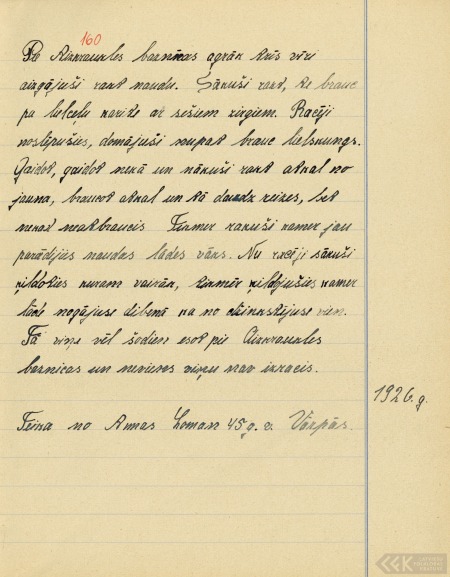 160
Pe Aizkraukles baznīcas agrāk trīs vīri
aizgājuši rakt naudu. Sākuši rakt, te brauc
pa lielceļu kariete ar sešiem zirgiem. Racēji
noslēpušies, domājuši nupat brauc lielskungs.
Gaidot, gaidot nekā un nākuši rakt atkal no
jauna, braucot atkal un tā daudz reizes, bet
nekad neatbraucis Tomēr rakuši kamēr jau
parādījies naudas lādes vāks. Nu racēji sākuši
ķildoties kuram vairāk, tikmēr ķildojušies kamēr
lāde nogājuse dibenā ka no vien.
Tā viņe vēl šodien esot pie Aizkraukles
baznicas un neviens viņu nav izracis.
1926.g.
Teica no Annas Loman 45 g. v. Vārpās.